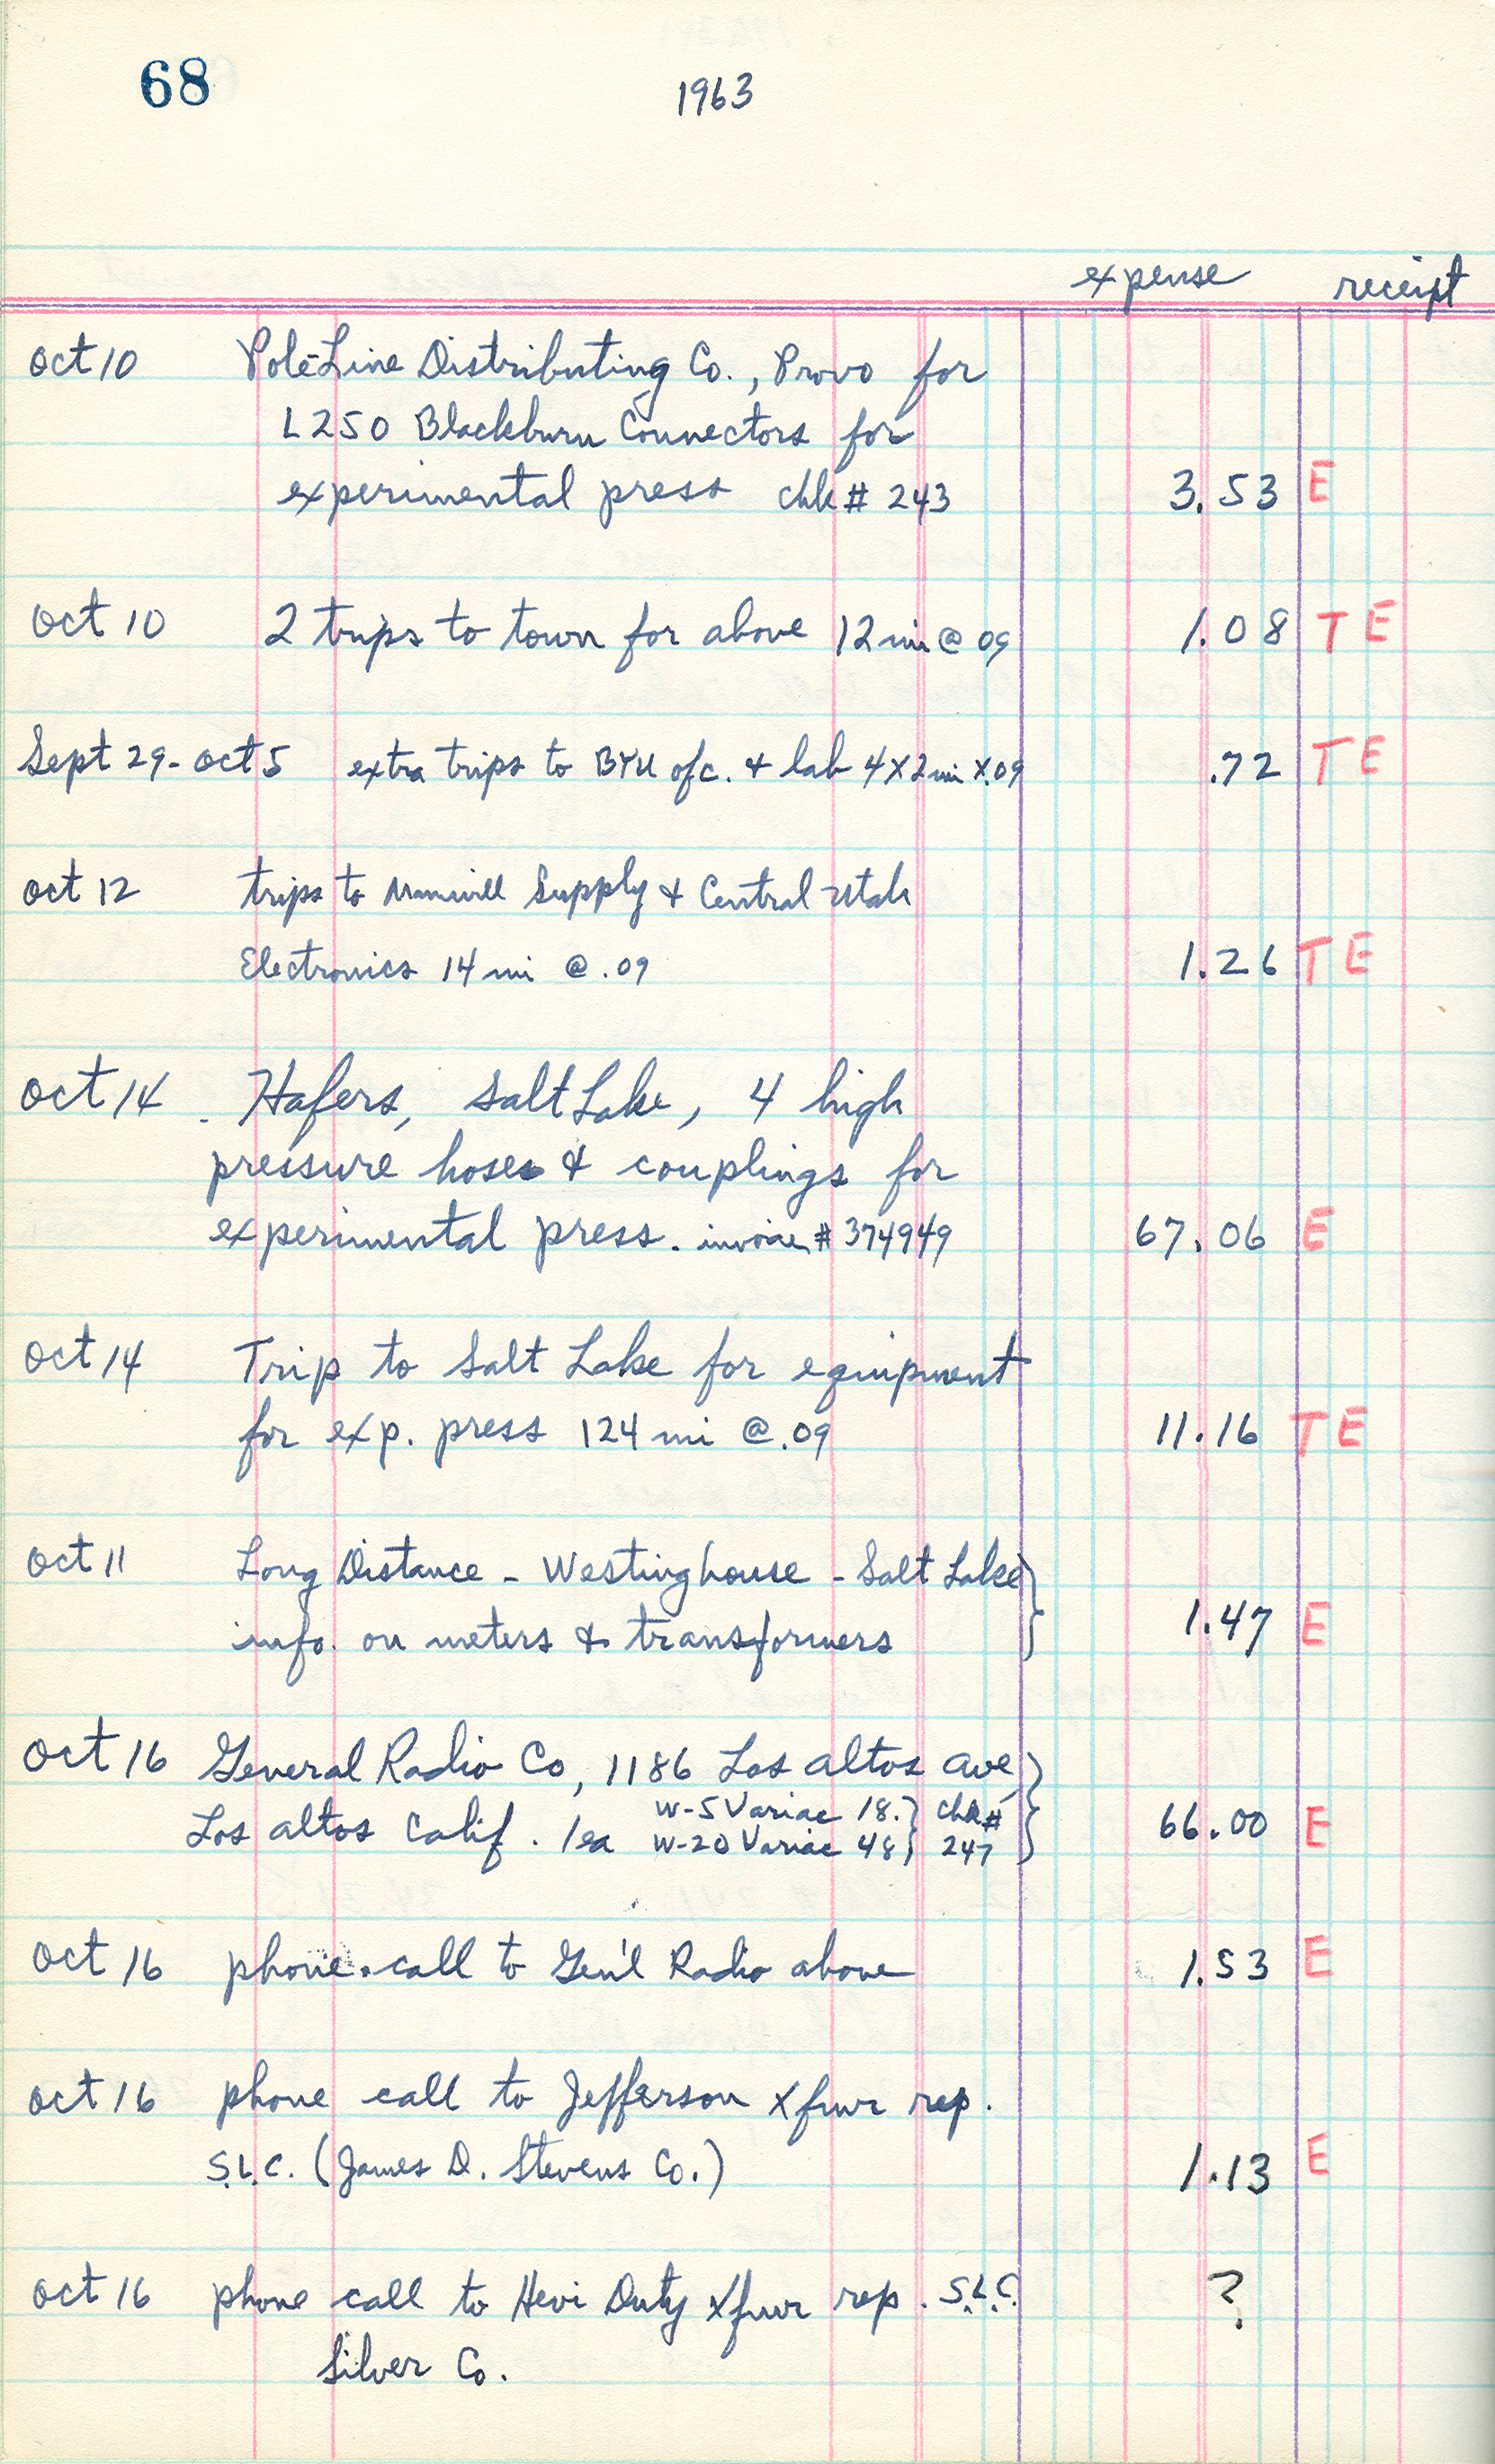 68
1963
expense receipt
Oct 10 Pole-Line Distributing Co., Provo for
L250 Blackburn Connectors for
experimental press chk # 243 3.53 E
Oct 10 2 trips to town for above 12 mi @ 09 1.08 T E
Sept 29 - Oct 5 extra trips to BYU ofc. & lab 4 X 2 mi X .09 .72 T E
Oct 12 trips to Supply & Central Utah
Electronics 14 mi @ .09 1.26 T E
Oct 14 Hafers, Salt Lake, 4 high
pressure hoses & couplings for
experimental press. invoice # 374949 67.06 E
Oct 14 Trip to Salt Lake for equipment
for exp. press 124 mi @ .09 11.16 T E
Oct 11 Long Distance - Westinghouse - Salt Lake
info. on meters & transformers 1.47 E
Oct 16 General Radio Co, 1186 Los Altos Ave
Los Altos Calif. 1 ea W-5 Variac 18. chk #
W-20 Variac 48 247 66.00 E
Oct 16 phone call to Gen'l Radio above 1.53 E
Oct 16 phone call to Jefferson xfmr rep.
S.L.C. (James D. Stevens Co.) 1.13 E
Oct 16 phone call to Hevi Duty xfmr rep. S.L.C. ?
Silver Co.